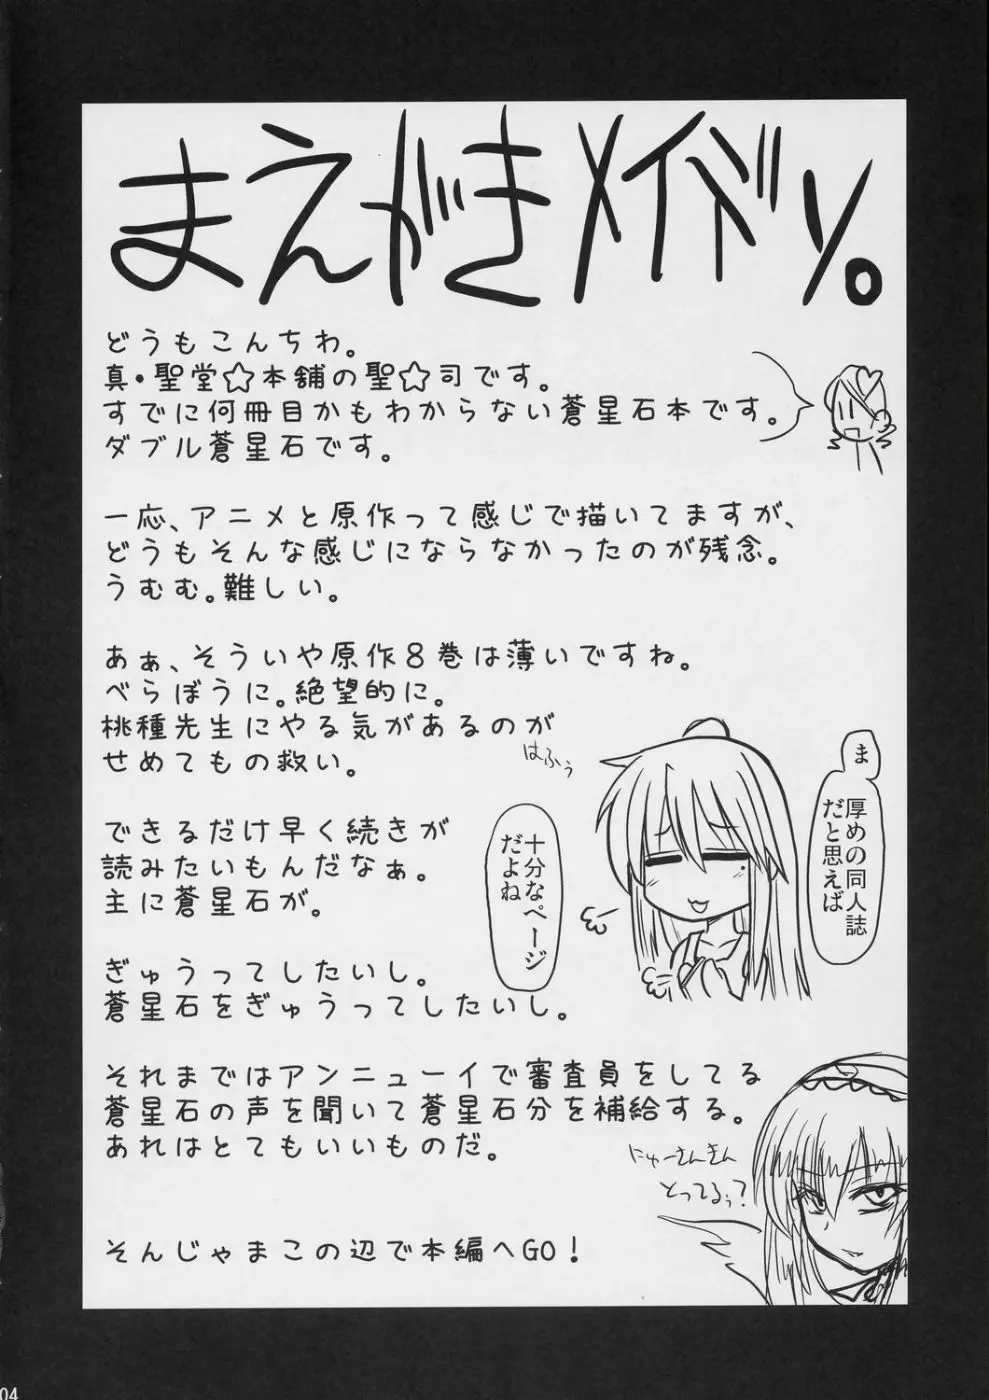 まえがきメイドッ。
どうもこんちわ。
真・聖堂☆本舗の聖☆司です。
すでに何冊目かもわからない蒼星石本です。
ダブル蒼星石です。
一応、アニメと原作って感じで描いてますが、
どうもそんな感じにならなかったのが残念。
うむむ。難しい。
あぁ、そういや原作8巻は薄いですね。
べらぼうに。絶望的に。
桃種先生にやる気があるのが
せめてもの救い。
はふぅ
ま
厚めの同人誌
だと思えば
十分なページ
だよね
できるだけ早く続きが
読みたいもんだなぁ。
主に蒼星石が。
ぎゅうってしたいし。
蒼星石をぎゅうってしたいし。
それまではアンニューイで審査員をしてる
蒼星石の声を聞いて蒼星石分を補給する。
あれはとてもいいものだ。
にゅーさんきん
とってるぅ?
そんじゃまこの辺で本編へGO!
04